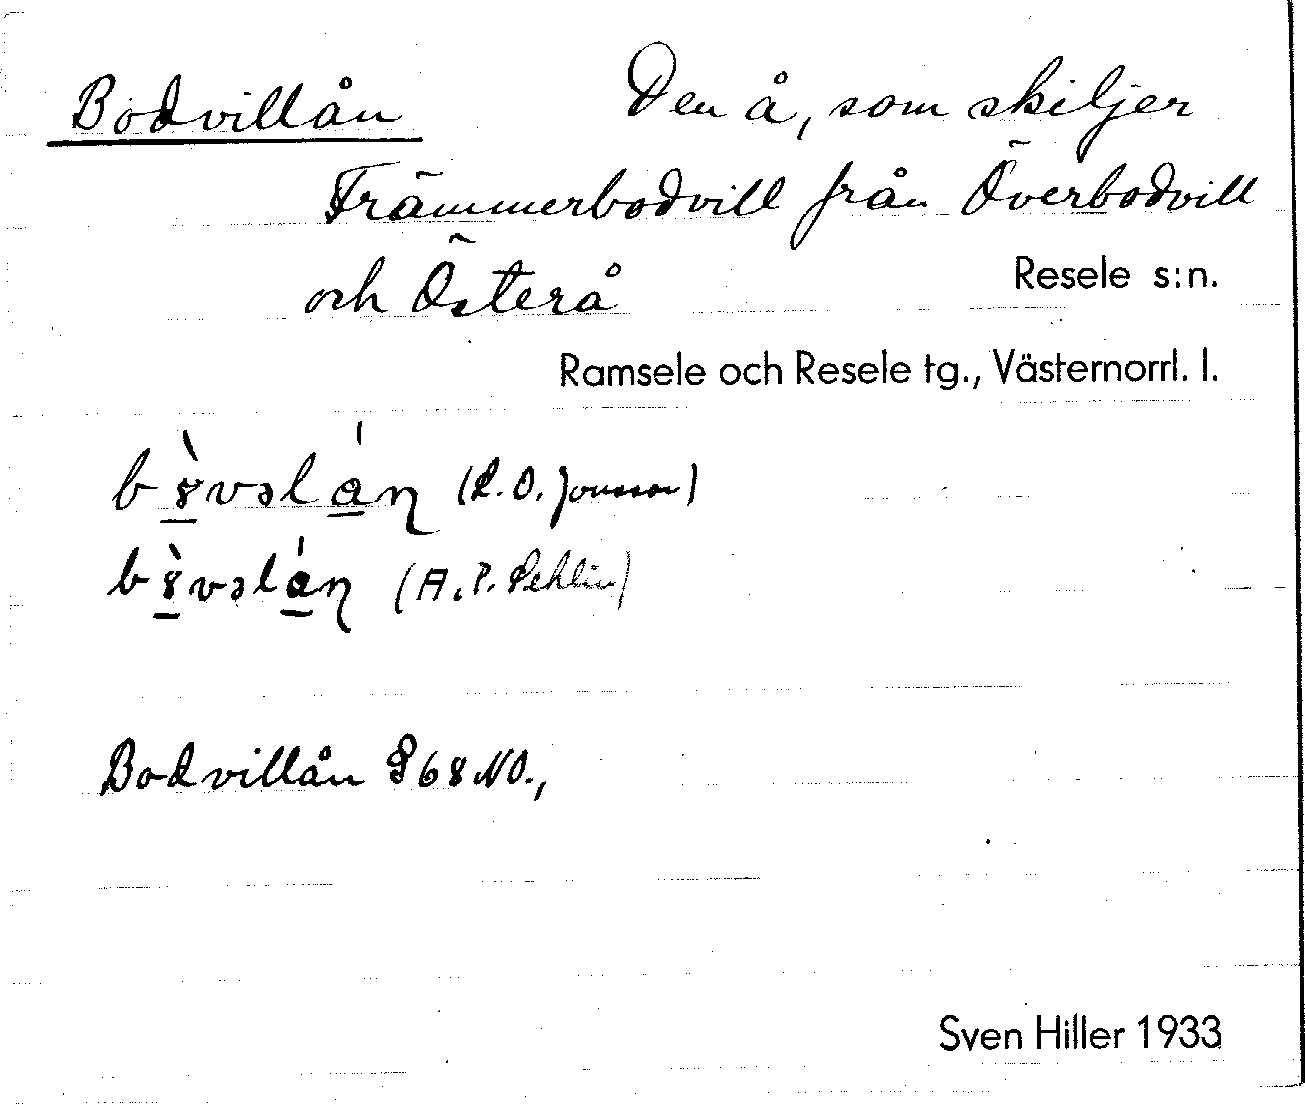 Bodvillån Den å, som skiljer
Främmerbodvill från Överbodvill
och Österå
Resele s:n.
Ramsele och Resele tg., Västernorrl. l.
(R. O. Jonsson)
(A. P. Sehlin)
Bodvillån 968 NO.,
Sven Hiller 1933